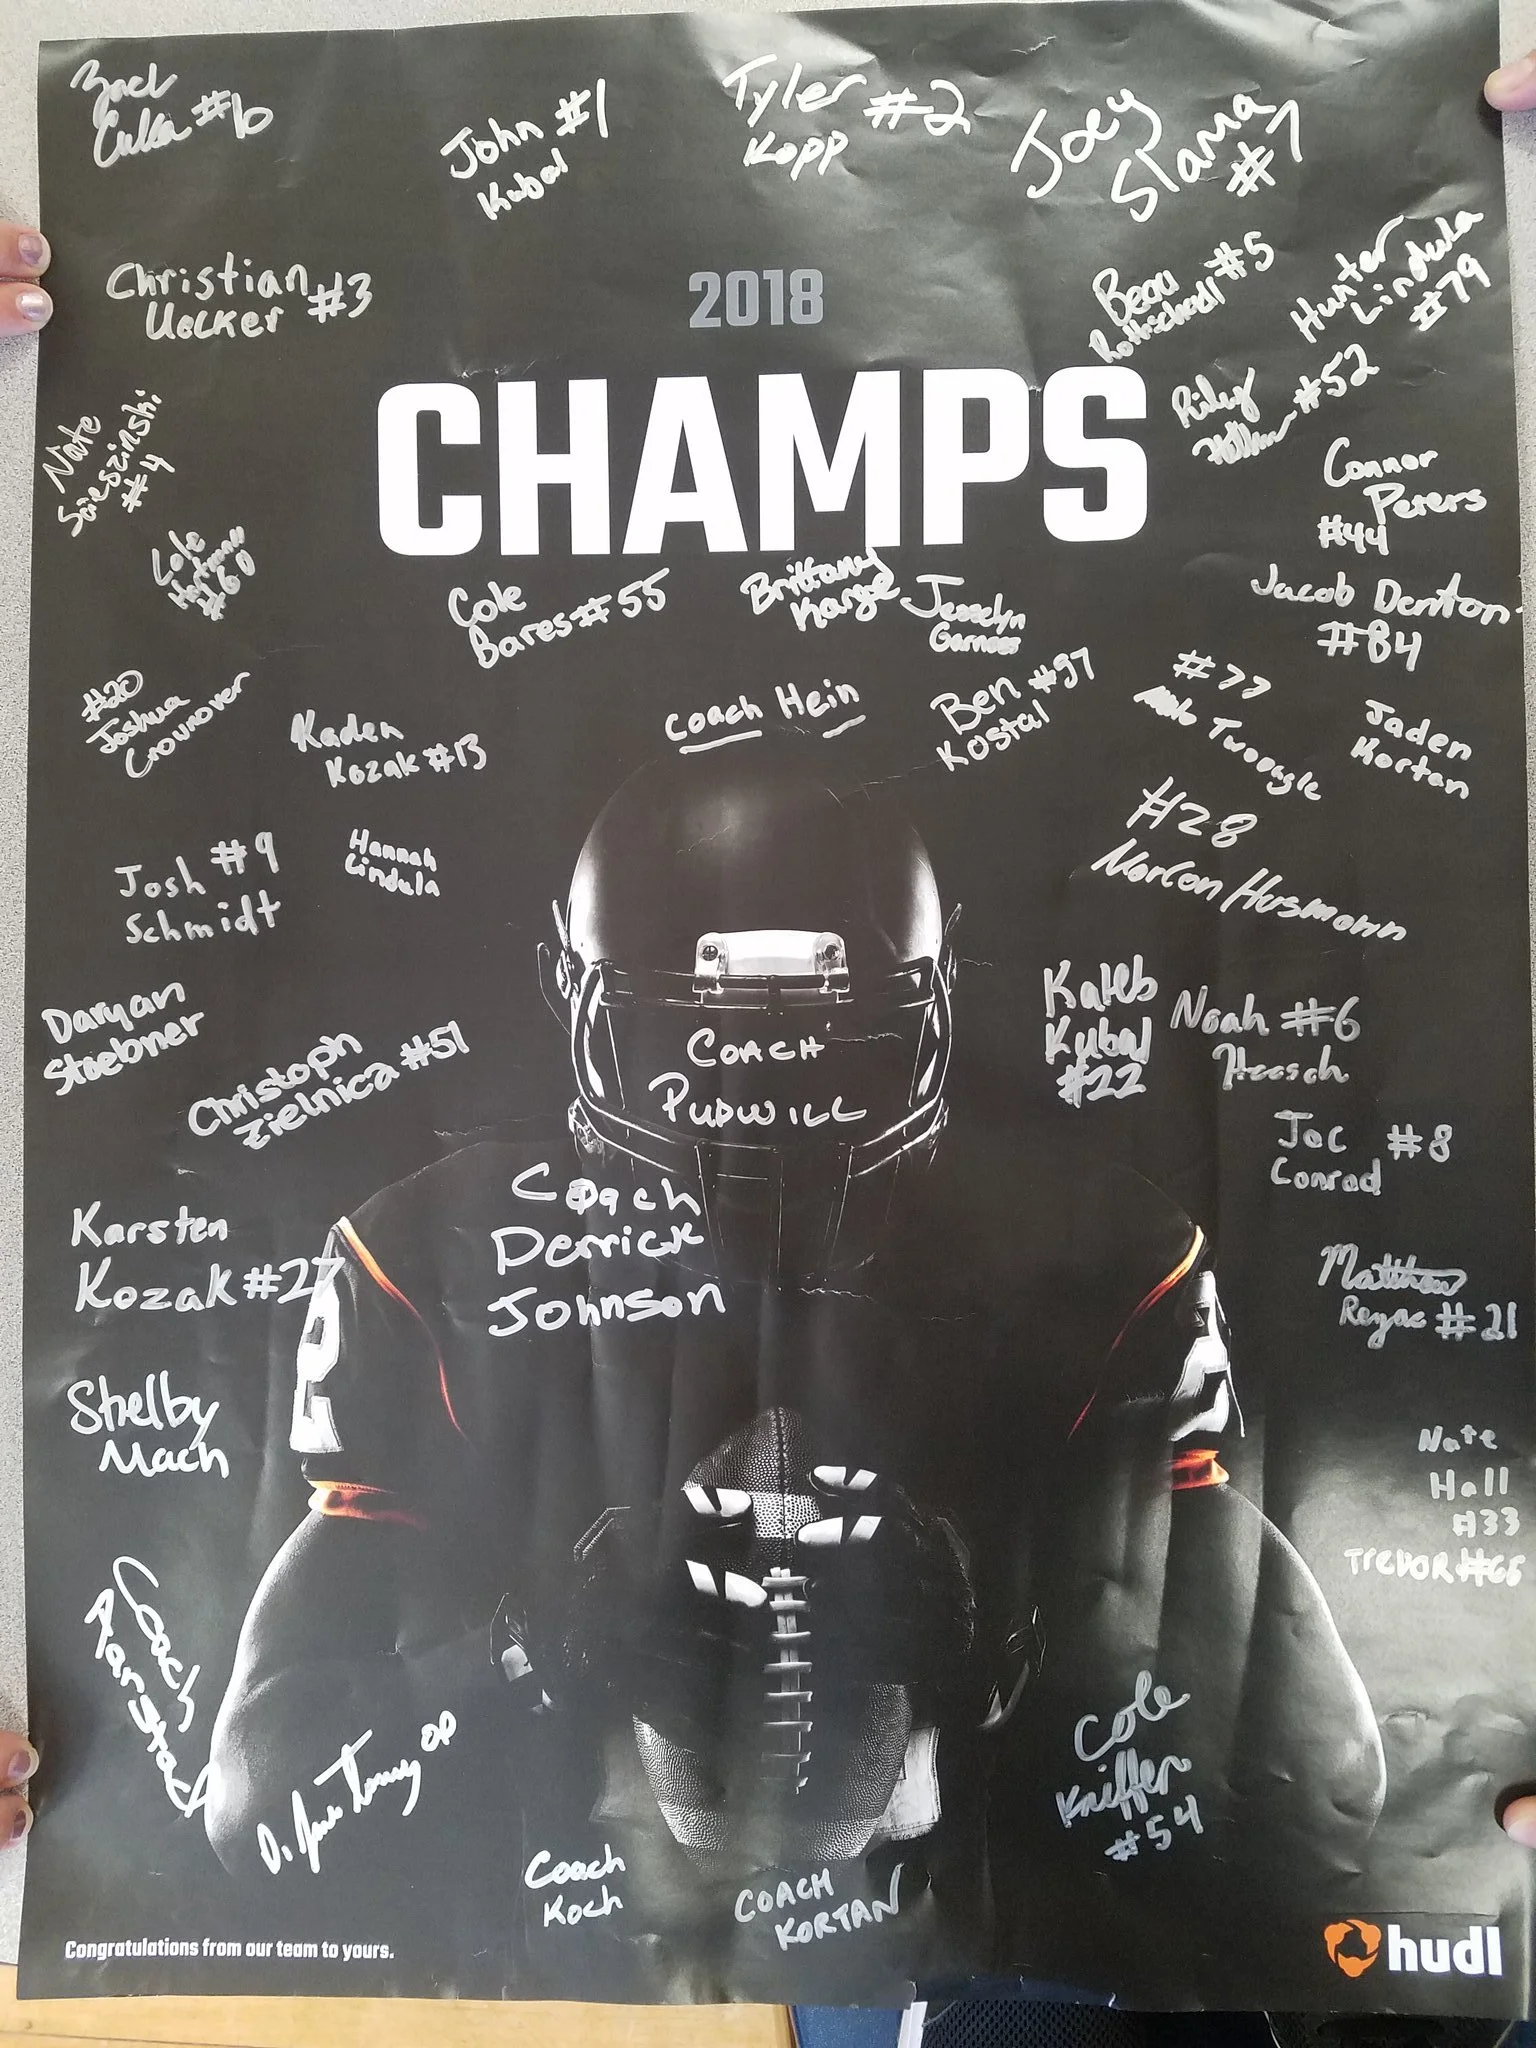 Zach
Cuka #10
John #1
Kubal
Tyler #2
Kopp
Joey
Slama
#7
Christian
Uecker #3
2018
Beau #5
Rothschadl
Hunter
Lindula
#79
CHAMPS
Riley #52
Nate
#4
Connor
Peters
#44
Cole
Hartman
#60
Cole
Bares #55
Brittany
Karge
Josselyn
Jacob Denton
#84
#20
Joshua
Crounover
Kaden
Kozak #13
Coach Hein
Ben #97
Kostal
#77
Twoeagle
Jaden
Kortan
Josh #9
Schmidt
Hannah
Lindula
#28
Norlon Husmann
Daryan
Stoebner
Christoph
Zielnica #51
Coach
Pudwill
Kaleb
Kubal
#22
Noah #6
Heesch
Joe #8
Conrad
Karsten
Kozak #27
Coach
Derrick
Johnson
2
2
Matthew
Regac #21
Shelby
Mach
Nate
Hall
#33
TREVOR #66
Coach
Cole
Kniffen
#54
Coach
Koch
COACH
KORTAN
Congratulations from our team to yours.
hudl